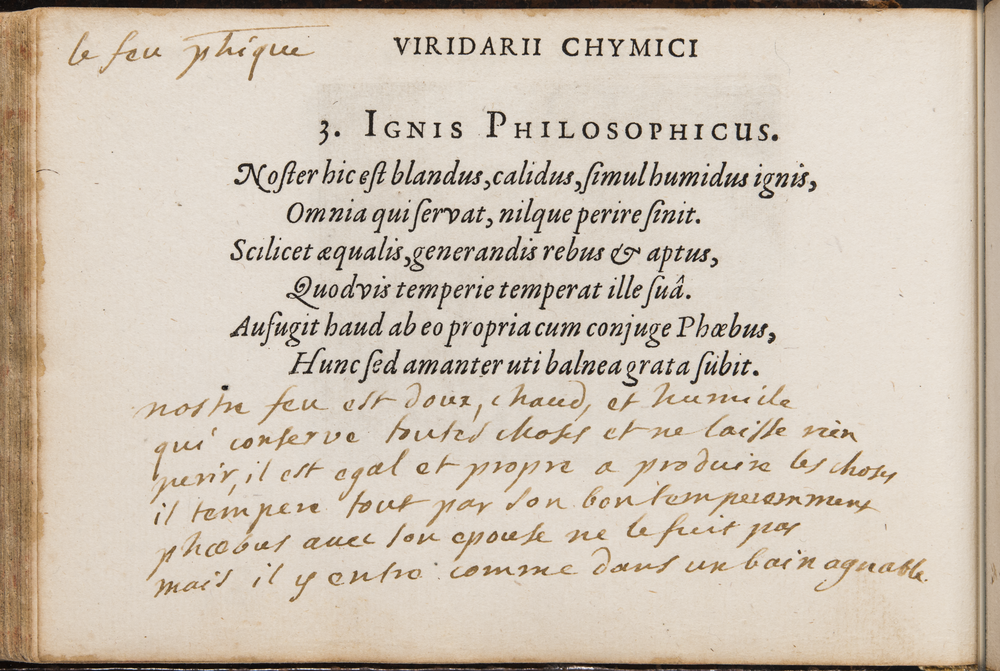 le feu phique
VIRIDARII CHYMICI
3. IGNIS PHILOSOPHICUS.
Noſter hic eſt blandus, calidus, ſimul humidus ignis,
Omnia qui ſervat, nilque perire ſinit.
Scilicet æqualis, generandis rebus & aptus,
Quodvis temperie temperat ille ſuâ.
Aufugit haud ab eo propria cum conjuge Phœbus,
Hunc ſed amanter uti balnea grata ſubit.
nostre feu est doux, chaud, et humide
qui conserve toutes choses et ne laisse rien
perir, il est egal et propre a produire les choses
il tempere tout par son bon temperamment
phœbus avec son epouse ne le fuit pas
mais il y entre comme dans un bain agreable.